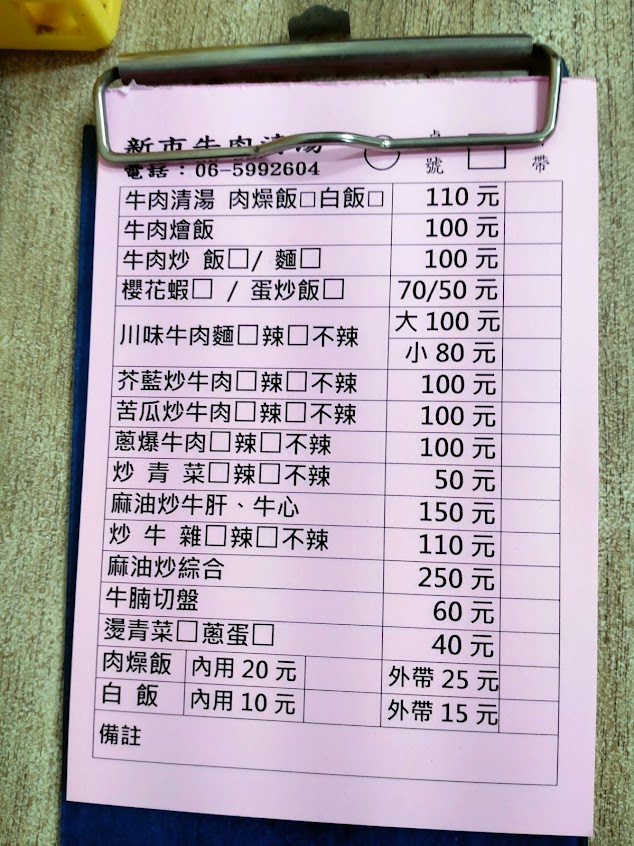 新市牛肉清湯
電話：06-5992604
桌號
帶
牛肉清湯 肉燥飯□白飯□ 110 元
牛肉燴飯 100 元
牛肉炒 飯□/ 麵□ 100 元
櫻花蝦□ / 蛋炒飯□ 70/50 元
川味牛肉麵□辣□不辣 大 100 元
小 80 元
芥藍炒牛肉□辣□不辣 100 元
苦瓜炒牛肉□辣□不辣 100 元
蔥爆牛肉□辣□不辣 100 元
炒 青 菜□辣□不辣 50 元
麻油炒牛肝、牛心 150 元
炒 牛 雜□辣□不辣 110 元
麻油炒綜合 250 元
牛腩切盤 60 元
燙青菜□蔥蛋□ 40 元
肉燥飯 內用 20 元 外帶 25 元
白 飯 內用 10 元 外帶 15 元
備註